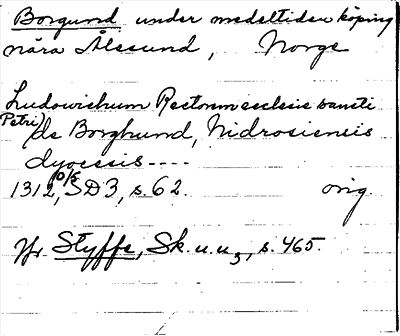 Borgund under medeltiden köping
nära Ålesund, Norge
Ludowichum Rectorem ecclesie sancti
Petri de Borghund, Nidrosiensis
dyocesis ----
1312 10/5, SD3, s. 62. orig.
Jfr Styffe, Sk. u. u3, s. 465.